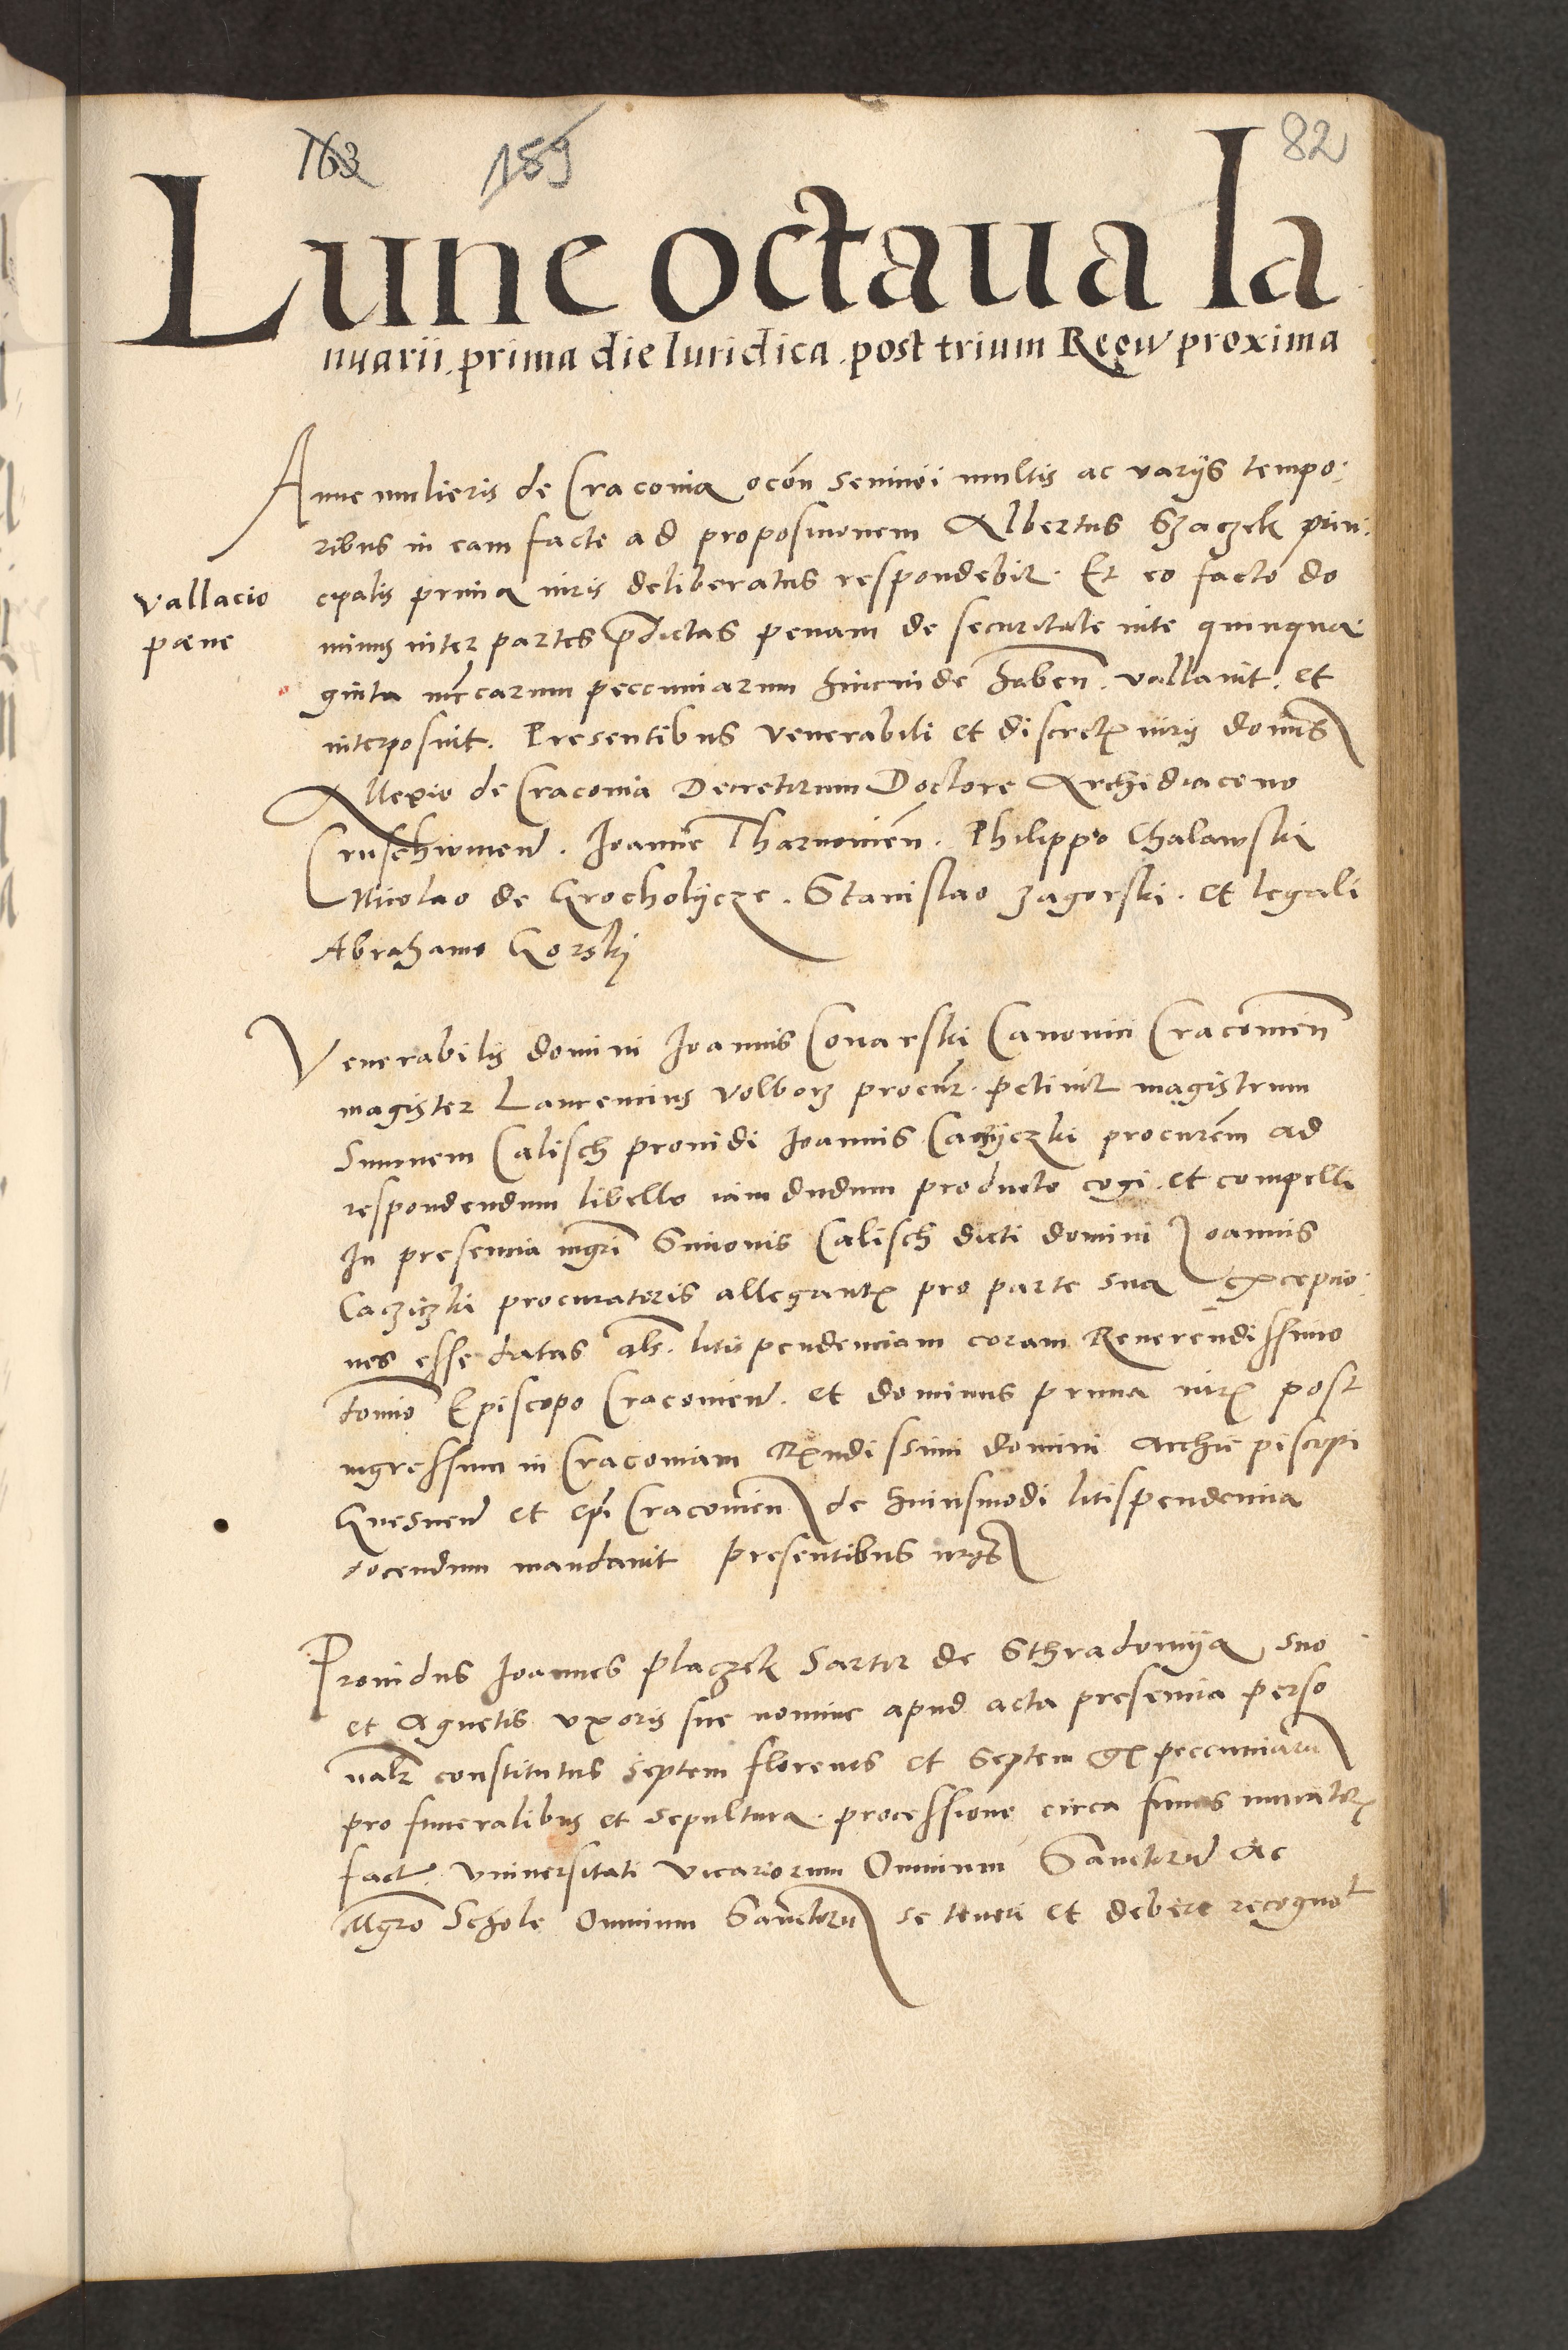 163 189 82
Lune octaua Ia
nuarii. prima die Iuridica. post trium Regu proxima
Anne mulieris de Cracouia multis ac varijs tempo.
ribus in eam facte ad proposicionem Albertus Szaczek prin.
vallacio
pæne
cipalis prima iuris deliberatus respondebit. Et eo facto do
minus inter partes p̄dictas penam de securitate vite quinqua
ginta mrcarum peccuniarum hincinde haben̄. vallauit. et
interposuit. Presentibus venerabili et discretis viris dominis
Allexio de Cracouia Decretorum Doctore Archidiacono
Cruschwicien. Ioanne Tharnouien̄. Philippo Chalawski
Nicolao de Grocholijcze. Stanislao zagorski. et legali
Abrahamo Gorskj
Venerabilis domini Ioannis Conarski Canonici Cracouien̄
magister Laurencius volborz procur̄. petiuit magistrum
Simonem Calisch prouidi Ioannis Caczijczki procur̄em ad
respondendum libello iam dudum producto cogi. et compelli
In presencia mgri Simonis Calisch dicti domini Ioannis
Cacziczki procuratoris allegantis pro parte sua excepcio.
nes esse datas als. litis pendenciam coram Reuerendissimo
domino Episcopo Cracouien. et dominus prima iuris post
ingressum in Cracouiam Reuendissimi domini Archiepiscopi
Gnesnen et epi Cracouien̄ de huiusmodi litispendencia
docendum mandauit presentibus
Prouidus Ioannes placzek Sartor de Sthradomija, suo
et Agnetis vxoris sue nomine apud acta presencia perso
nalr constitutus septem florenos et septem gr peccuniaru
pro funeralibus et sepultura. processione circa funus
fact. vniuersitati vicariorum Omnium Sanctoru Ac
Mgro Schole Omnium Sanctoru se teneri et debere recognot